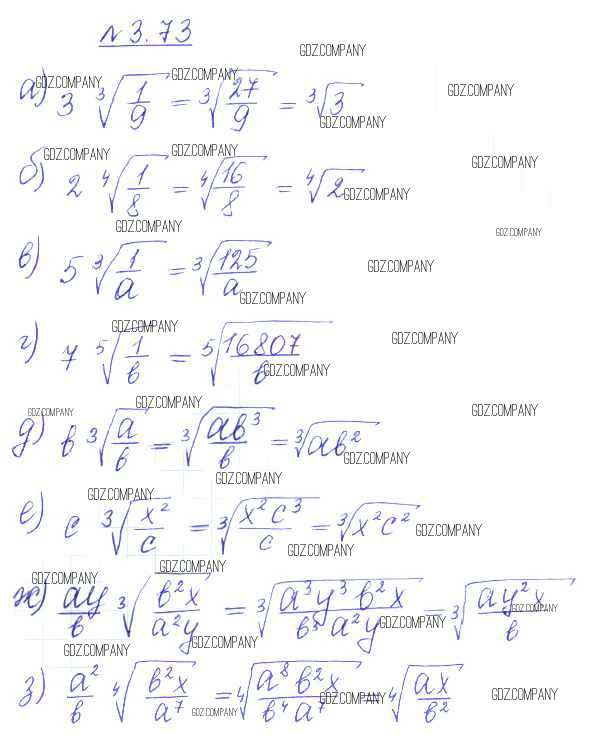 N 3.73
GDZ.COMPANY
а) 3 ∛(1/9) = ∛(27/9) = ∛3
GDZ.COMPANY GDZ.COMPANY GDZ.COMPANY
GDZ.COMPANY
б) 2 ∜(1/8) = ∜(16/8) = ∜2
GDZ.COMPANY GDZ.COMPANY GDZ.COMPANY
GDZ.COMPANY
GDZ.COMPANY GDZ.COMPANY
в) 5 ∛(1/a) = ∛(125/a)
GDZ.COMPANY
GDZ.COMPANY
г) 7 ⁵√(1/b) = ⁵√(16807/b)
GDZ.COMPANY GDZ.COMPANY
GDZ.COMPANY
GDZ.COMPANY GDZ.COMPANY GDZ.COMPANY
д) b ∛(a/b) = ∛(ab³/b) = ∛(ab²)
GDZ.COMPANY
GDZ.COMPANY
GDZ.COMPANY
е) c ∛(x²/c) = ∛(x²c³/c) = ∛(x²c²)
GDZ.COMPANY
GDZ.COMPANY
GDZ.COMPANY
GDZ.COMPANY
ж) ay/b ∛(b²x/a²y) = ∛(a³y³b²x/b³a²y) = ∛(ay²x/b)
GDZ.COMPANY
GDZ.COMPANY
GDZ.COMPANY
GDZ.COMPANY
з) a²/b ∜(b²x/a⁷) = ∜(a⁸b²x/b⁴a⁷) = ∜(ax/b²)
GDZ.COMPANY GDZ.COMPANY GDZ.COMPANY